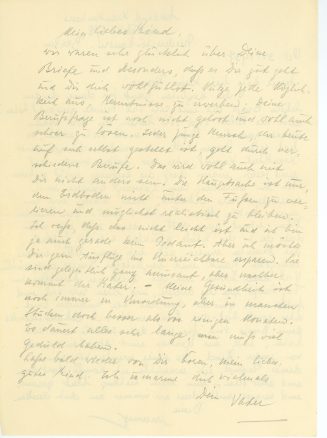 Mein liebes Kind,
wir waren sehr glücklich über Deine
Briefe und besonders, daß es Dir gut geht
und Du dich wohlfühlst. Nütze jede Möglich-
keit aus, Kenntnisse zu erwerben. Deine
Berufsfrage ist noch nicht gelöst und wohl auch
schwer zu lösen. Jeder junge Mensch, der heute
auf sich selbst gestellt ist, geht durch ver-
schiedene Berufe. Das wird wohl auch mit
Dir nicht anders sein. Die Hauptsache ist nur,
den Erdboden nicht unter den Füßen zu ver-
lieren und möglichst realistisch zu bleiben.
Ich weiß, daß das nicht leicht ist und ich bin
ja auch gerade kein Pedant. Aber ich möchte
Dir gern Ausflüge ins Unerreichbare ersparen. Sie
sind gelegentlich ganz amüsant, aber nachher
kommt der Kater. - Meine Gesundheit ist
noch immer in Unordnung, aber in manchen
Stücken doch besser als vor einigen Monaten.
Es dauert alles sehr lange, man muß viel
Geduld haben.
Laß bald wieder von Dir hören, mein liebes,
gutes Kind. Ich umarme dich vielmals
Dein Vater